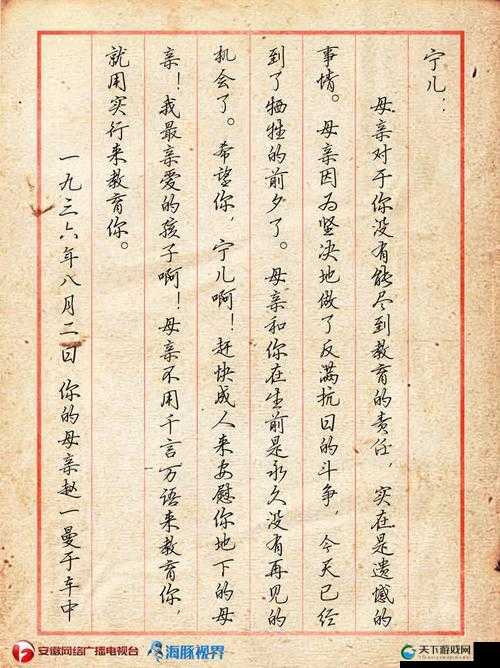 宁儿：
母亲对于你没有能尽到教育的责任，实在是遗憾的
事情。母亲因为坚决地做了反满抗日的斗争，今天已经
到了牺牲的前夕了。母亲和你在生前是永久没有再见的
机会了。希望你，宁儿啊！赶快成人来安慰你地下的母
亲！我最亲爱的孩子啊！母亲不用千言万语来教育你，
就用实行来教育你。
一九三六年八月二日 你的母亲赵一曼于车中
安徽网络广播电视台
海豚视界
天下游戏网